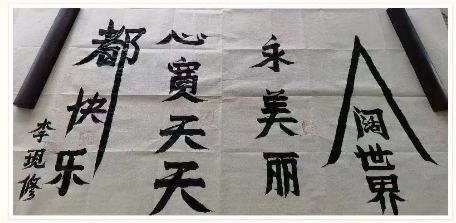 人阔世界
永美丽
心宽天天
都快乐
李现修